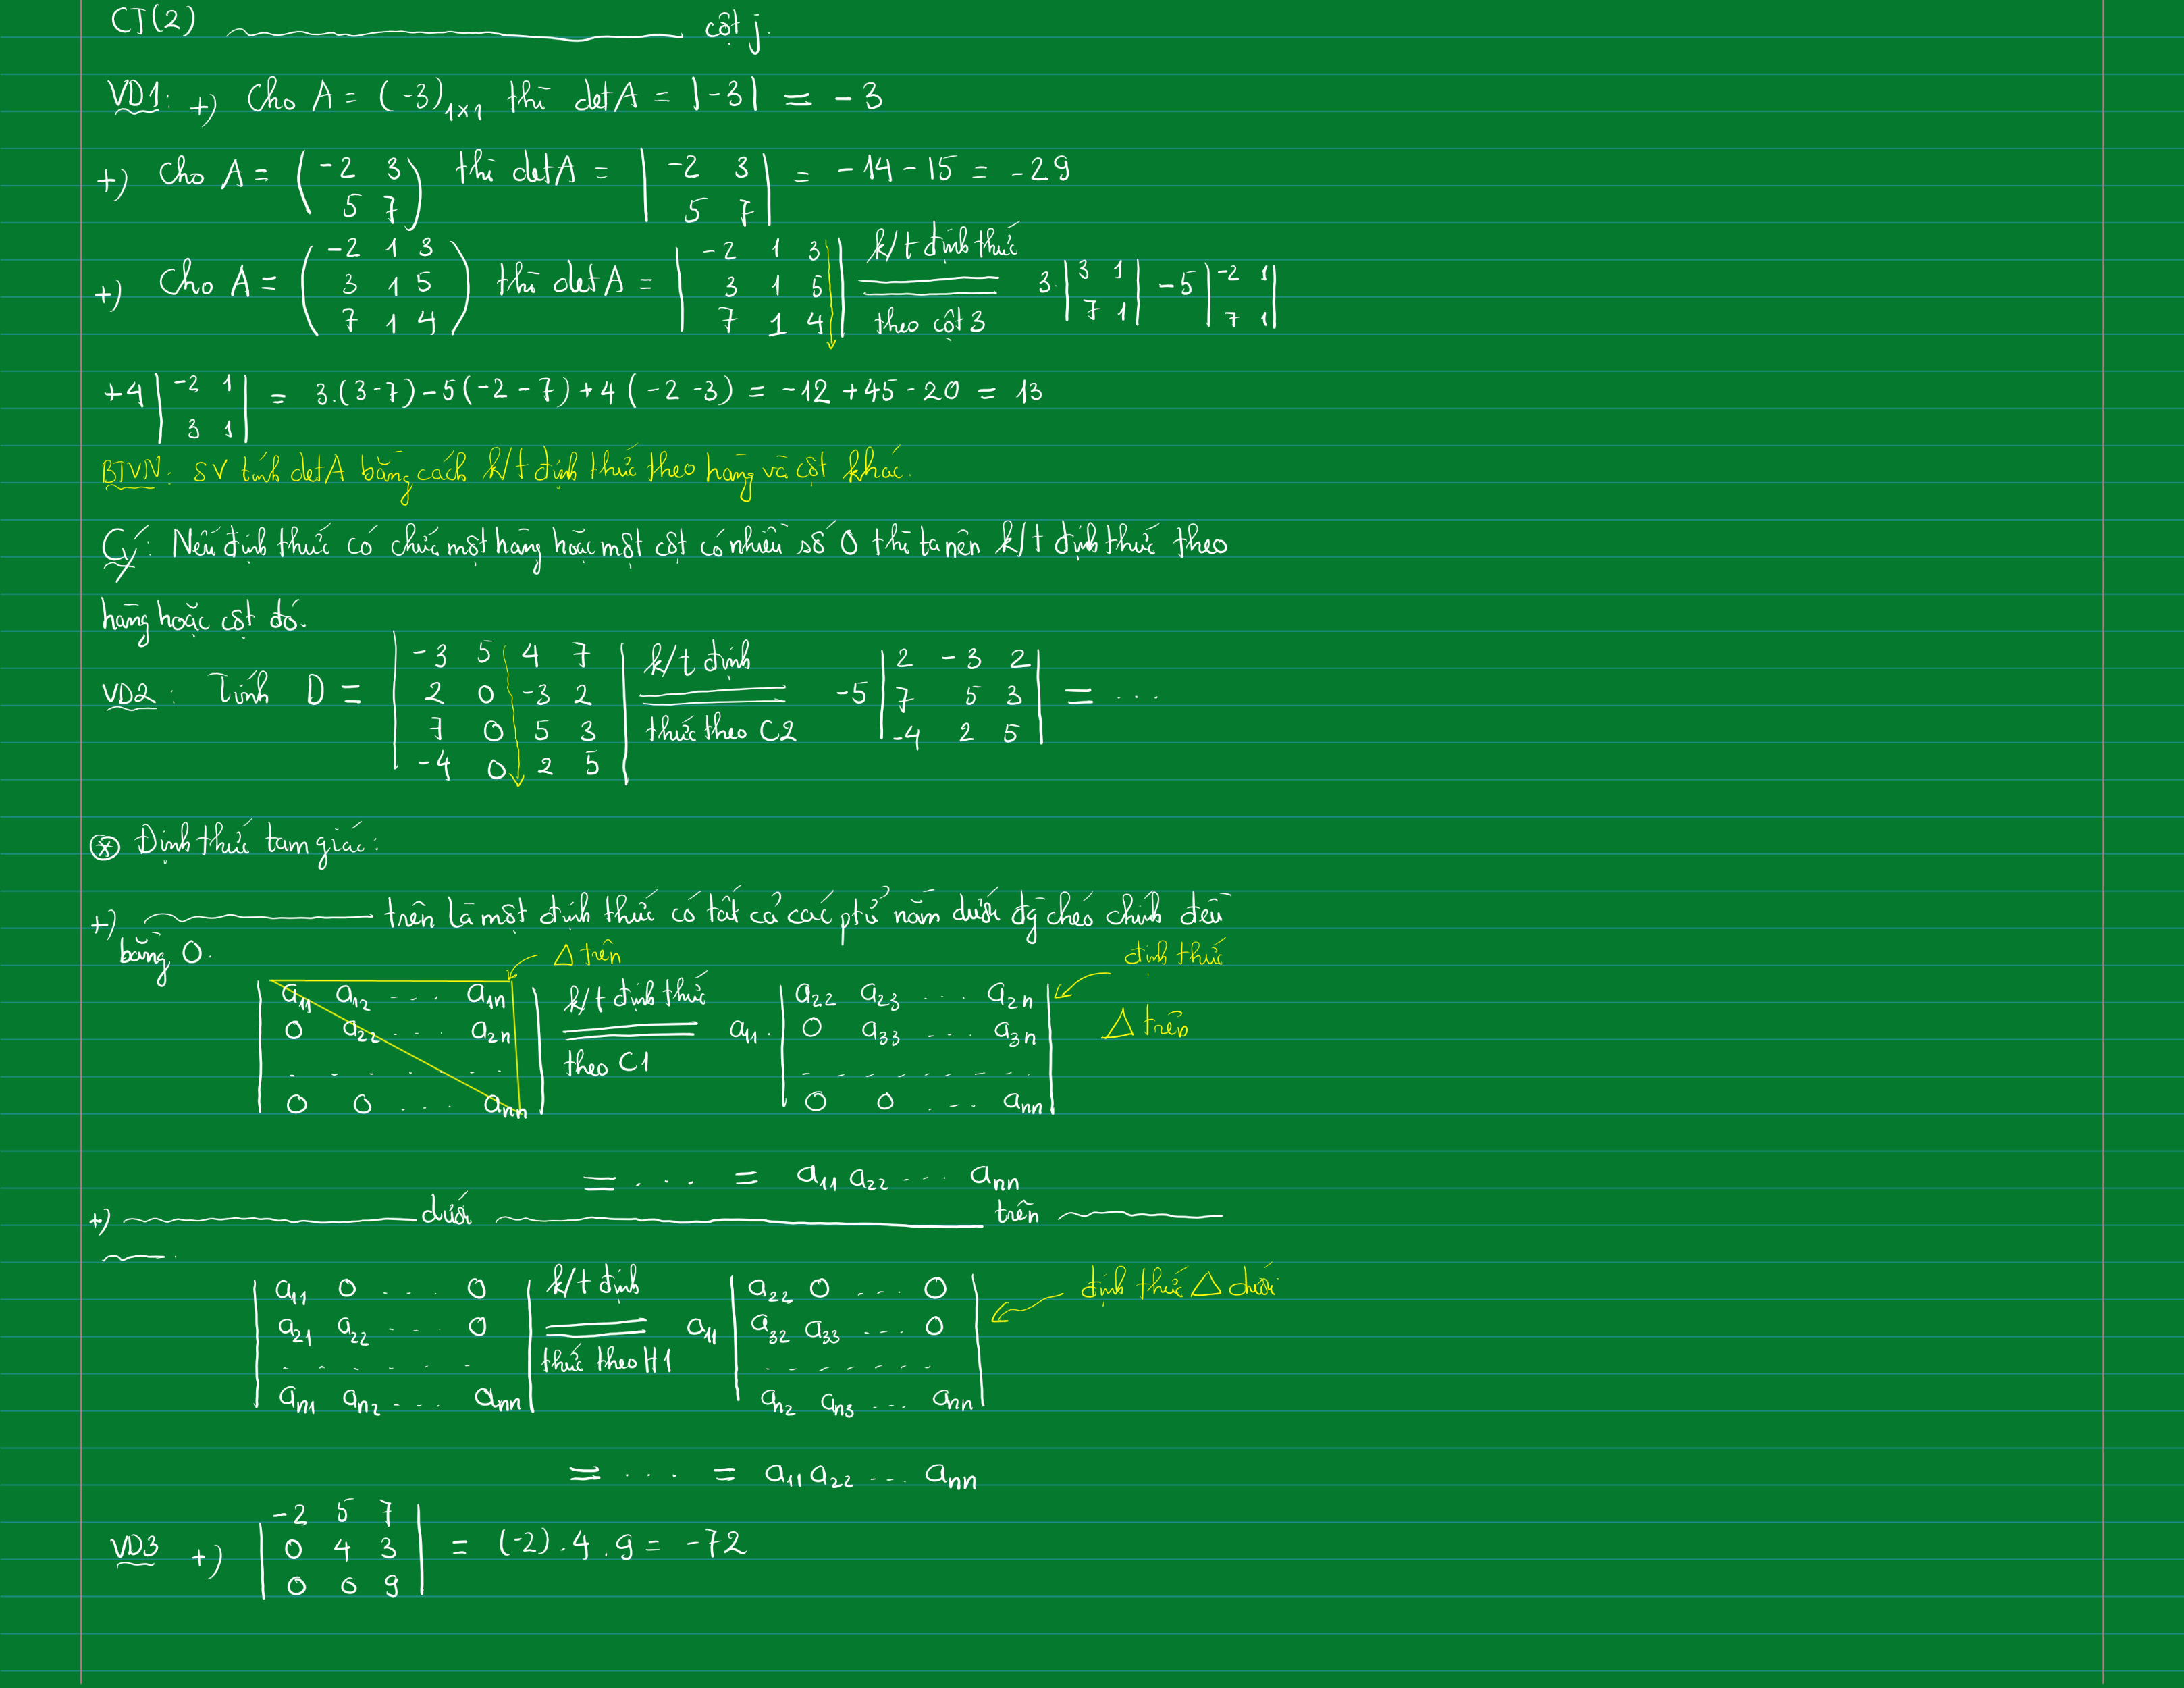 CT(2) cột j.
VD1: +) Cho A = (-3)1×1 thì detA = |-3| = -3
+) Cho A = ( -2 3 ; 5 7 ) thì detA = | -2 3 ; 5 7 | = -14 - 15 = -29
+) Cho A = ( -2 1 3 ; 3 1 5 ; 7 1 4 ) thì detA = | -2 1 3 ; 3 1 5 ; 7 1 4 | k/t định thức theo cột 3 3. | 3 1 ; 7 1 | -5 | -2 1 ; 7 1 |
+4 | -2 1 ; 3 1 | = 3.(3-7) - 5(-2-7) + 4(-2-3) = -12 + 45 - 20 = 13
BTVN: SV tính detA bằng cách k/t định thức theo hàng và cột khác.
Cý: Nếu định thức có chứa một hàng hoặc một cột có nhiều số 0 thì ta nên k/t định thức theo
hàng hoặc cột đó.
VD2: Tính D = | -3 5 4 7 ; 2 0 -3 2 ; 7 0 5 3 ; -4 0 2 5 | k/t định thức theo C2 -5 | 2 -3 2 ; 7 5 3 ; -4 2 5 | = ...
⊛ Định thức tam giác:
+) trên là một định thức có tất cả các ptử nằm dưới đg chéo chính đều
bằng 0.
Δ trên
định thức
Δ trên
| a11 a12 ... a1n ; 0 a22 ... a2n ; ....... ; 0 0 ... ann | k/t định thức theo C1 a11. | a22 a23 ... a2n ; 0 a33 ... a3n ; ........ ; 0 0 ... ann |
= .... = a11 a22 .... ann
+) dưới trên
.
| a11 0 .... 0 ; a21 a22 ... 0 ; ...... ; an1 an2 .... ann | k/t định thức theo H1 a11 | a22 0 .... 0 ; a32 a33 ... 0 ; ....... ; an2 an3 .... ann | định thức Δ dưới
= .... = a11 a22 .... ann
VD3 +) | -2 5 7 ; 0 4 3 ; 0 0 9 | = (-2).4.9 = -72